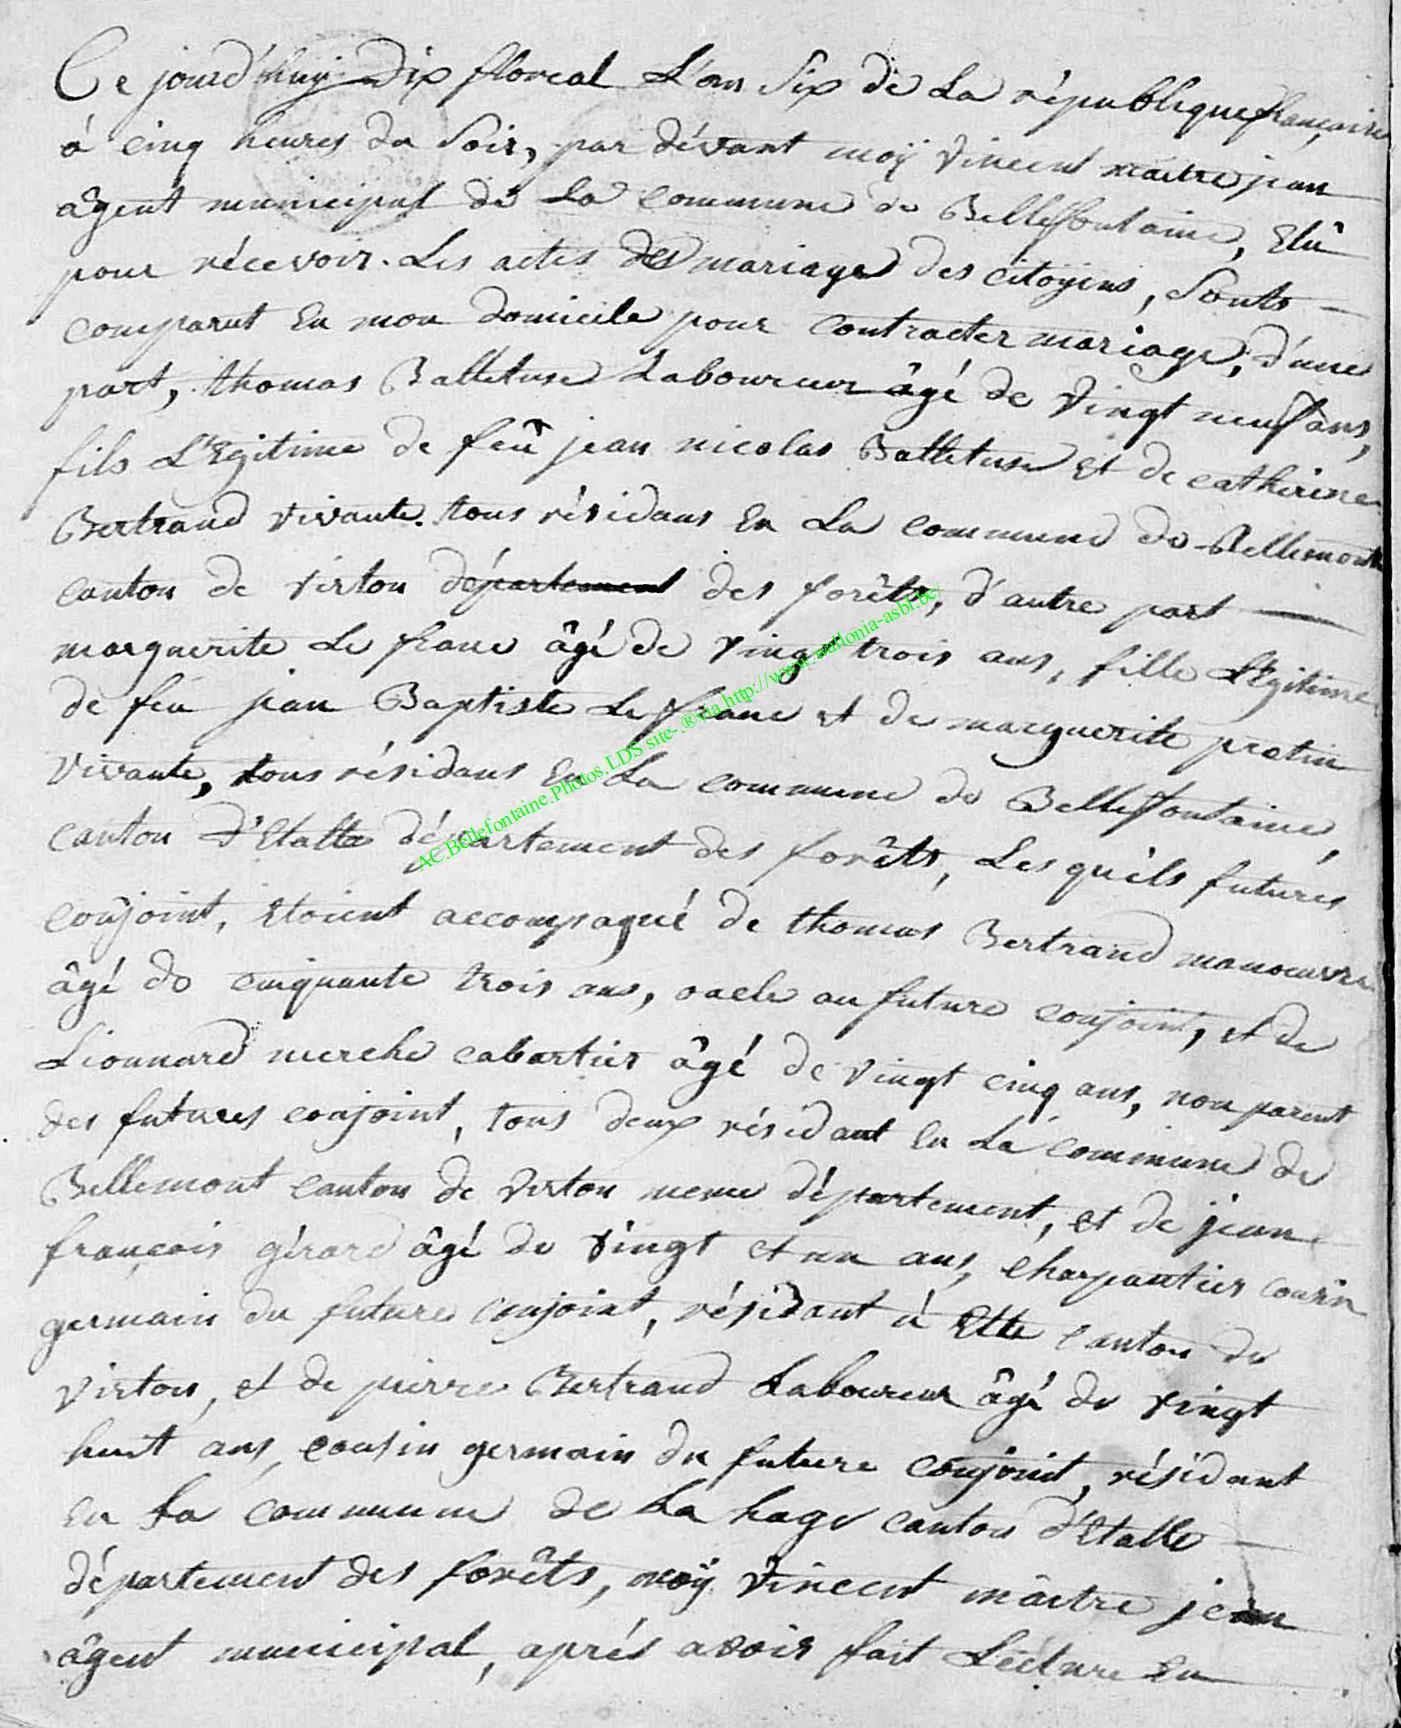 Ce jourd'huy dix floreal L'an Six de La république française
à cinq heures du Soir, par dévant moÿ vincent maitrejean
agent municipal de La commune de Bellefontaine, Elû
pour récevoir Les actes de mariage des citoÿens, Sonts
comparut En mon domicile pour contracter mariage, d'une
part, thomas Balletuse Laboureur âgé de vingt neuf ans,
fils L'Egitime de feû jean nicolas Balletuse Et de catherine
Bertrand vivante. tous résidans En La commune de Bellemont
canton de virton département des forêts, d'autre part
marguerite Le franc âgé de vingt trois ans, fille L'Egitime
de feu jean Baptiste Le franc et de marguerite protin
vivante, tous résidans En La commune de Bellefontaine,
canton d'Etalle département des forêts, Les quéls futurés
coñjoint, Etoient accompagné de thomas Bertrand manoeuvre
âgé de cinquante trois ans, oncle au future conjoint, et de
Lionnard merche cabartier âgé de vingt cinq ans, non parent
des futures conjoint, tous deux résidant En La commune de
Bellemont canton de virton meme département, et de jean
françois gérard âgé de vingt et un ans, charpantier cousin
germain du future conjoint, résidant à Ette canton de
virton, et de pierre Bertrand Laboureur âgé de vingt
huit ans, cousin germain du future conjoint, résidant
En La commune de La hage canton d'Etalle
département des forêts, moÿ vincent mâitre jean
âgent municipal, aprés avoir fait Lécture En
AC.Bellefontaine.Photos.LDS site-.®via.http://www.wallonia-asbl.be/